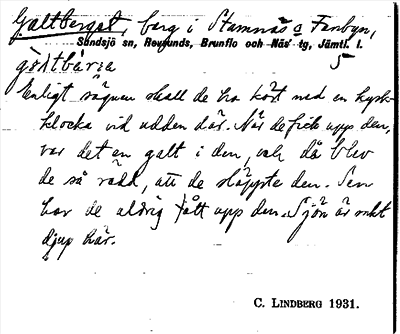 Galtberget, berg i Stamnäs o Fanbyn,
Sundsjö sn, Revsunds, Brunflo och Näs' tg, Jämtl. l.
5
Enligt sägnen skall de ha kört ned en kyrk-
klocka vid udden där. När de fick upp den,
var det en galt i den, och då blev
de så rädd, att de släppte den. Sen
har de aldrig fått upp den. Sjön är omkt
djup här.
C. LINDBERG 1931.